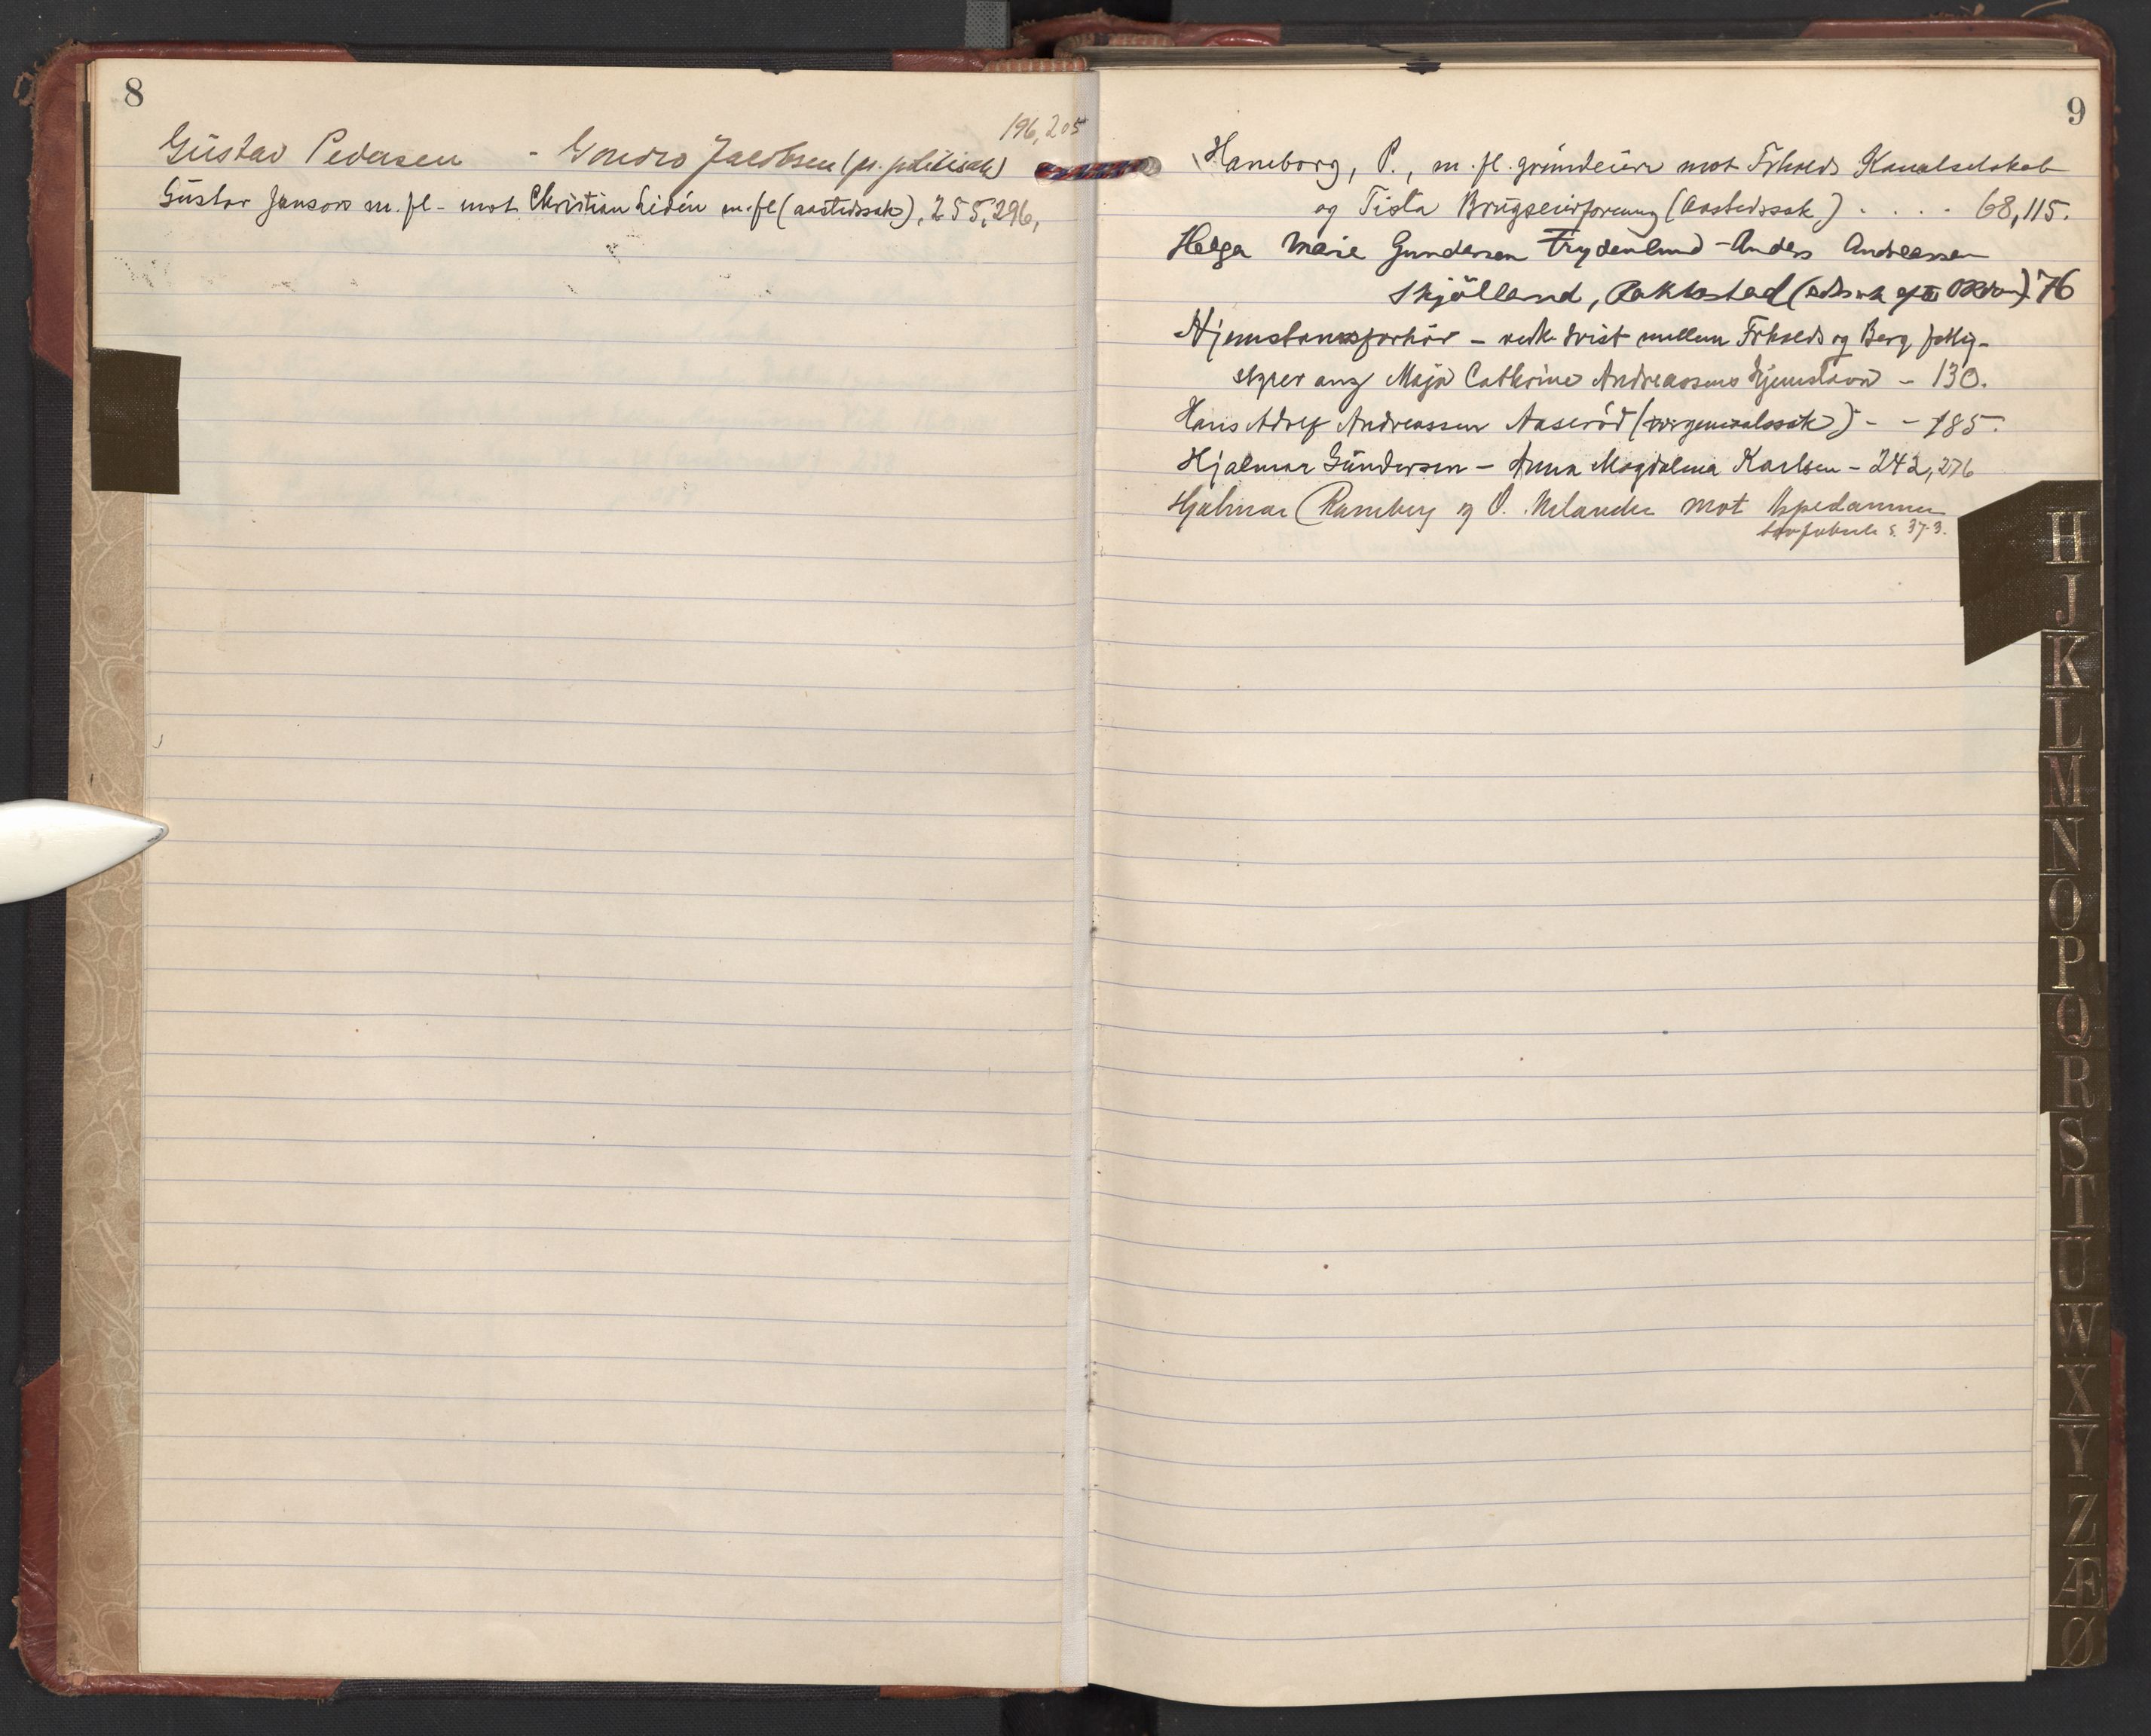 8
196, 205
Gustav Pedersen - Jacobsen (pr. politisak)
Gustav Janson m. fl - mot Christian Lidén m. fl (aastedssak), 255, 296,
9
Haneborg, P., m. fl. grundeiere mot Frhalds Kanalselskab
og Tista Brugseierforening (Aastedssak) . . . . 68, 115.
Helga Marie Gundersen Frydenlund - Anders Andreassen
Skjölland, Rakkestad 76
Hjemstavnsforhör - vedk. tvist mellem Frhalds og Berg fattig-
ang Maja Cathrine Andreassens Hjemstavn - 130.
Hans Adolf Andreassen Aaseröd - - 185.
Hjalmar Gundersen - Anna Magdalena Karlsen - 242, 276
Hjalmar Ramberg og O. Melander mot Aspedammen
s. 37-3.
H
J
K
L
M
N
O
P
Q
R
S
T
U
W
X
Y
Z
Æ
Ø